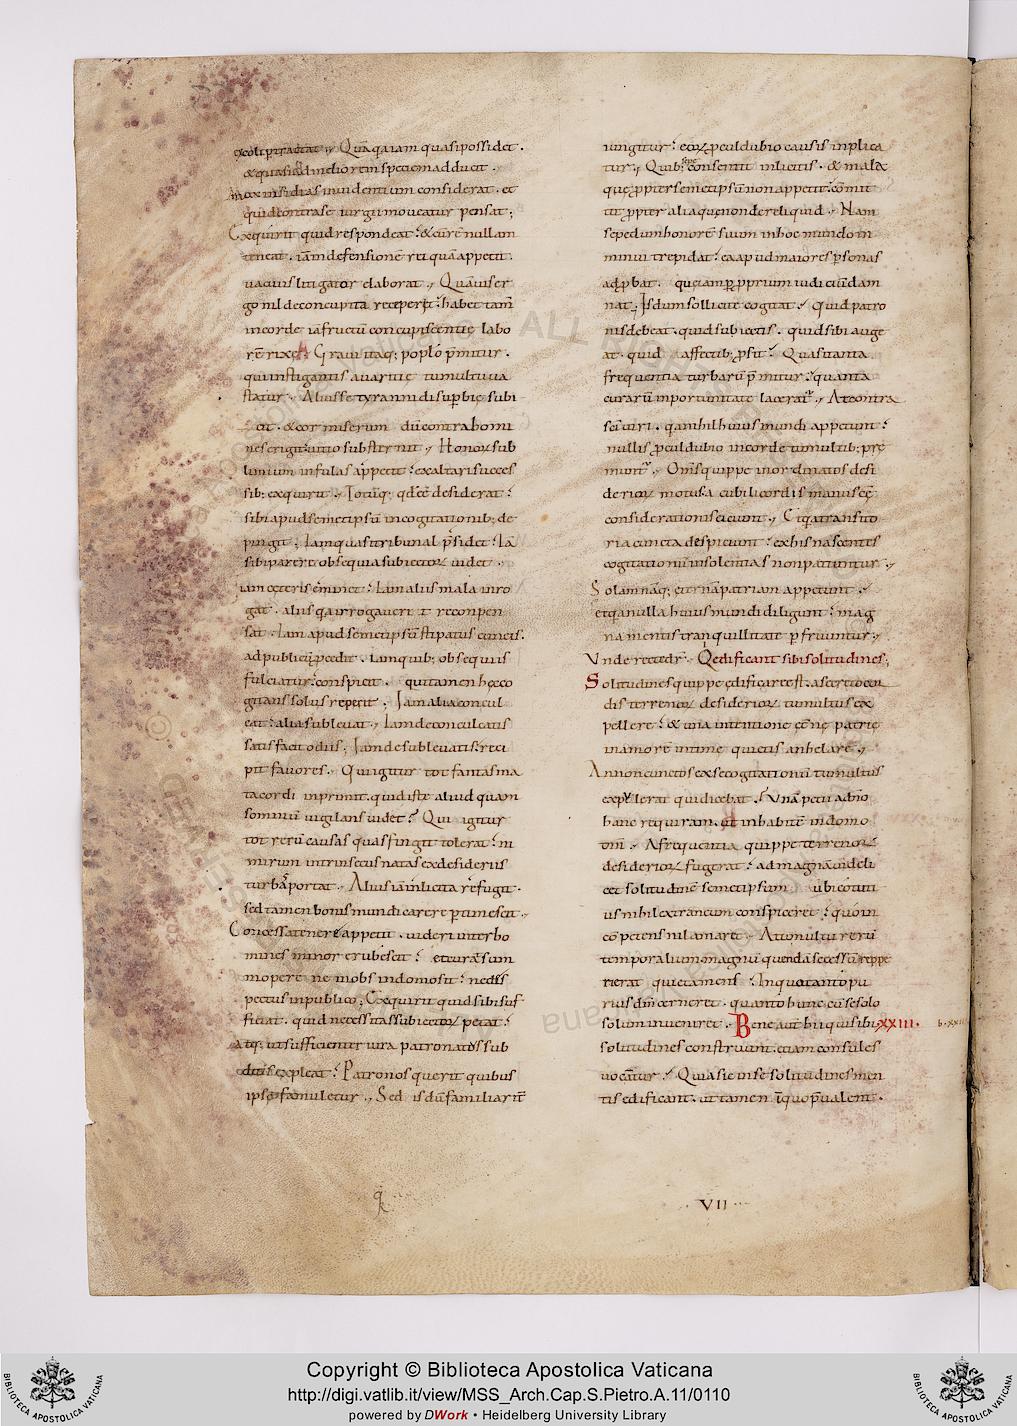 Quaq̄ iam quasi possidet.
& quasi ad meliorem speciem adducit.
mox insidias inuidentium considerat. et
quid contra se iurgii moueatur pensat;
Exquirit quid respondeat. & cū rē nullam
teneat. iā in defensione rei quā appetit.
uacuus litigator elaborat. Quāuis er
go nil de concupita re ceperit. habet tam̄
in corde iā fructū concupiscentie labo
rē rixę. A Graui itaq; poplo p̄mitur.
qui instigantis auaritię tumultu ua
statur. Alius se tyrannidi supbię subi
cit. & cor miserum dū contra homi
nes erigit. uitio substernit. Honorū sub
limium infulas appetit. exaltari succes
sib; exquirit. Totūq; qd eē desiderat.
sibi apud semetipsū in cogitationib; de
pingit; Iam quasi tribunal p̄sidet. Iā
sibi parere obsequia subiectorum uidet.
iam ceteris eminet. Iam aliis mala inro
gat. aliis qa irrogauert recompen
sat. Iam apud semetipsū stipatus cuneis.
ad publicū pcedit. Iam quib; obsequiis
fulciatur. conspicit. qui tamen hęc co
gitans solus repit. Iam alia concul
cat. alia subleuat. Iam de conculcatis
satisfacit odiis; Iam de subleuatis. reci
pit fauores. Qui igitur tot fantasma
ta cordi inprimit. quid iste aliud quam
somniū uigilans uidet? Qui igitur
tot rerū causas quas fingit tolerat. ni
mirum intrinsecus natas ex desideriis
turbā portat. Alius iā inlicita refugit.
sed tamen bonis mundi carere ptimescit.
Concessa tenere appetit. uideri inter ho
mines minor erubescit. et curat sum
mopere ne inobs in domo sit. ne des
pectus in publico; Exquirit quid sibi suf
ficiat. quid necessitas subiectorum petat.
Atq; ut sufficienter iura patronatus sub
ditis expleat. Patronos querit quibus
ipse famuletur. Sed is dū familiarit̄
iungitur. eorum pculdubio causis inplica
tur. Quib; sepe consentit inlicitis. & mala
que ppter semetipsū non appetit. comit
tit ppter alia que non dereliquid. Nam
sepe dum honorē suum in hoc mundo in
minui trepidat. ea apud maiores psonas
adpbat. que iam p pprium iudiciū dam
nat; Is dum sollicite cogitat. Quid patro
nis debeat. quid subiectis. quid sibi auge
at. quid affectib; psit. Quasi tanta
frequentia turbarū p̄mitur. quanta
curarū inportunitate laceratur. At contra
sci uiri. qa nihil huius mundi appetunt.
nullis pculdubio in corde tumultib; pre
muntur. Omīs quippe inordinatos desi
deriorum motus. a cubili cordis manu scę
considerationis eiciunt. Et qa transito
ria cuncta despiciunt. ex his nascentes
cogitationū insolentias non patiuntur.
Solam naq; eternā patriam appetunt.
et qa nulla huius mundi diligunt. mag
na mentis tranquillitate pfruuntur.
Unde recte dr. Q edificant sibi solitudines;
Solitudines quippe edificare est. a secreto cor
dis terrenorum desideriorum tumultus ex
pellere. & una intentione eternę patrię
in amorē intime quietis anhelare.
An non cunctos ex se cogitationū tumultus
expulerat qui dicebat. Unā petii a dno
hanc requiram. ut inhabitē in domo
dni. A frequentia quippe terrenorum
desideriorum fugerat. ad magnā uideli
cet solitudinē semetipsum ubi co tuti
us nihil extraneum conspiceret. quo in
cōpetens nil amaret. A tumultu rerū
temporalium. magnū quendā secessū reppe
rierat quietā mens. In quo tanto pu
rius dm̄ cerneret. quanto hunc cū se solo
solum inueniret. Bene aut hii qui sibi XXIII. b. xxiii
solitudines construunt. etiam consules
uocantur. Quia sic in se solitudines men
tis edificant. ut tamen in quo pualent.
q
VII
Copyright © Biblioteca Apostolica Vaticana
http://digi.vatlib.it/view/MSS_Arch.Cap.S.Pietro.A.11/0110
powered by DWork • Heidelberg University Library
BIBLIOTECA APOSTOLICA VATICANA
BIBLIOTECA APOSTOLICA VATICANA